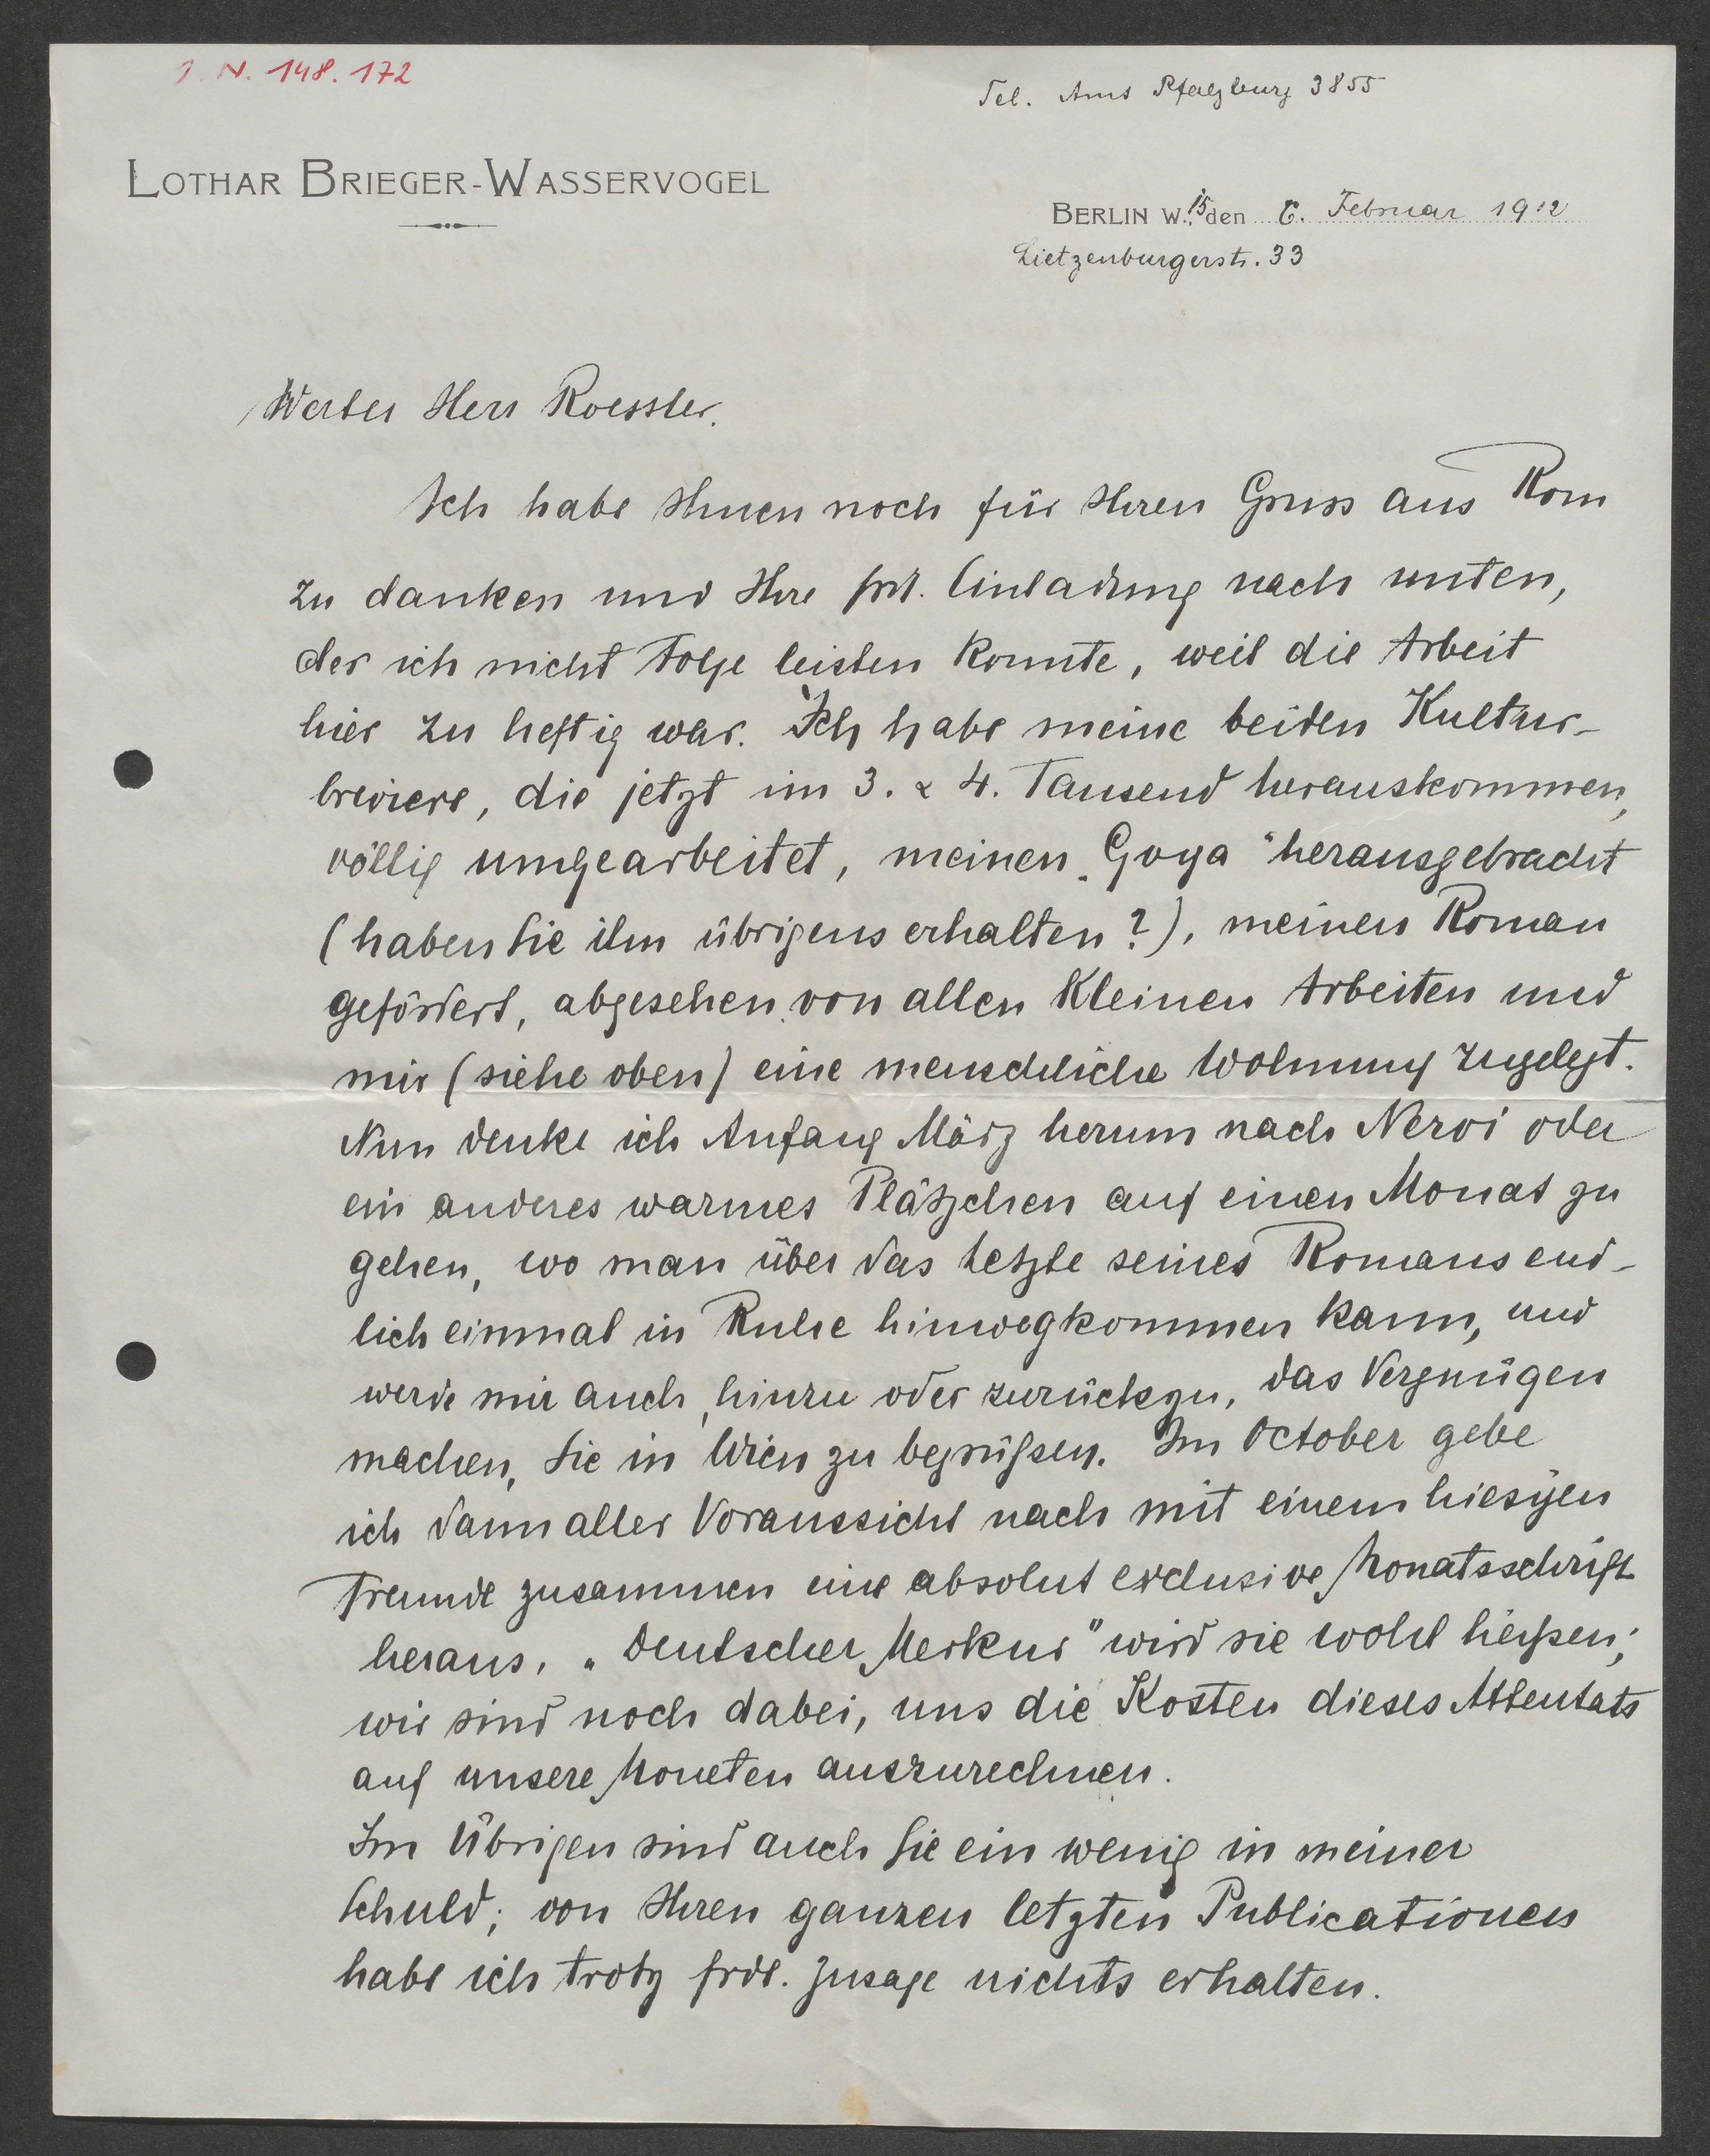 J. N. 148.172
Tel. Amt Pfalzburg 3855
LOTHAR BRIEGER-WASSERVOGEL
BERLIN W. 15 den 6. Februar 1912
Lietzenburgerstr. 33
Werter Herr Roessler.
Ich habe Ihnen noch für Ihren Gruss aus Rom
zu danken und Ihre frdl. Einladung nach unten,
der ich nicht Folge leisten konnte, weil die Arbeit
hier zu heftig war. Ich habe meine beiden Kultur-
breviere, die jetzt im 3. & 4. Tausend herauskommen,
völlig umgearbeitet, meinen „Goya" herausgebracht
(haben Sie ihn übrigens erhalten?), meinen Roman
gefördert, abgesehen von allen kleinen Arbeiten und
mir (siehe oben) eine menschliche Wohnung zugelegt.
Nun denke ich Anfang März herum nach Nervi oder
ein anderes warmes Plätzchen auf einen Monat zu
gehen, wo man über das Letzte seines Romans end-
lich einmal in Ruhe hinwegkommen kann, und
werde mir auch, hinzu oder zurückzu, das Vergnügen
machen, Sie in Wien zu begrüßen. Im October gebe
ich dann aller Voraussicht nach mit einem hiesigen
Freunde zusammen eine absolut exclusive Monatsschrift
heraus. „Deutscher Merkur" wird sie wohl heißen;
wir sind noch dabei, uns die Kosten dieses Attentats
auf unsere Moneten auszurechnen.
Im Übrigen sind auch Sie ein wenig in meiner
Schuld; von Ihren ganzen letzten Publicationen
habe ich trotz frdl. Zusage nichts erhalten.